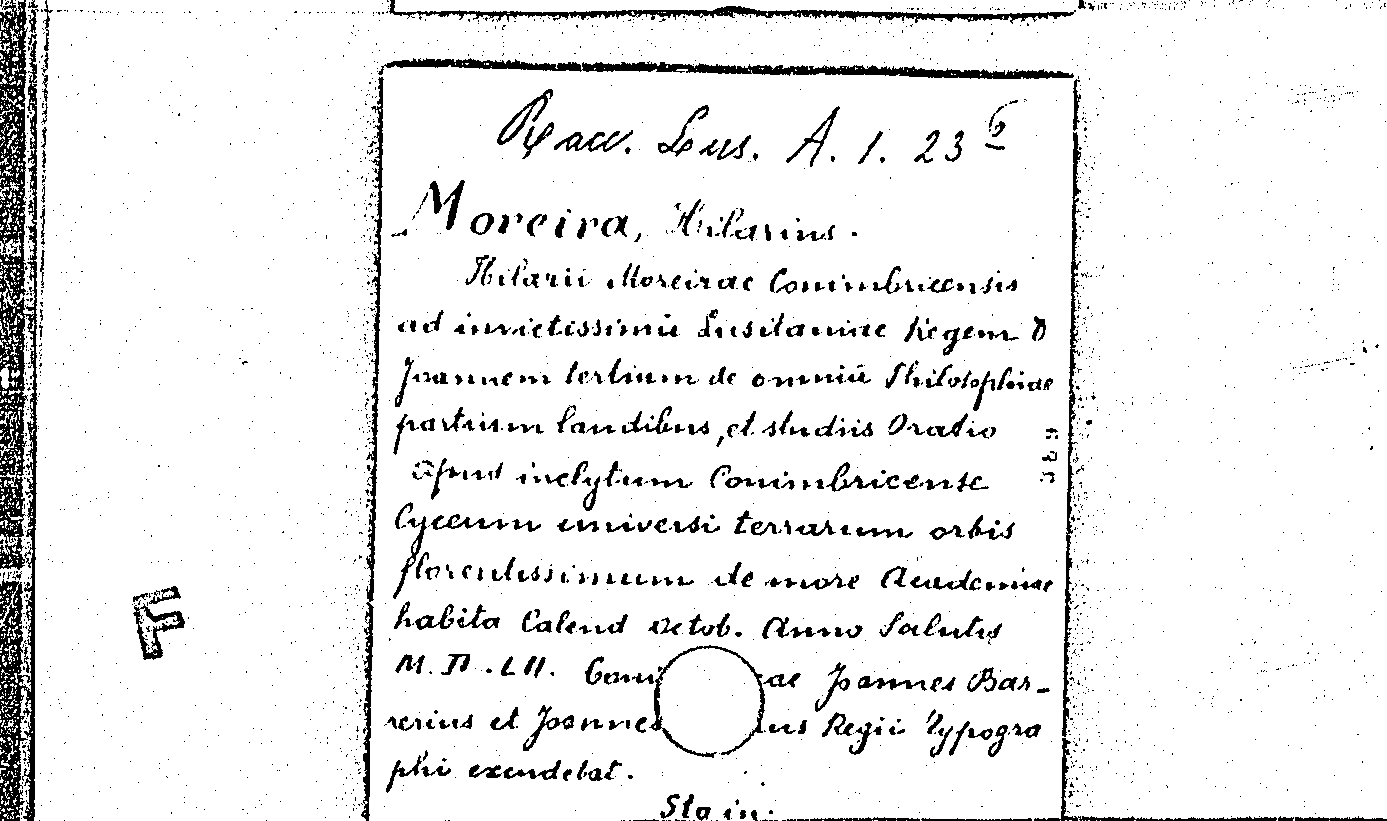 Racc. Lus. A. 1. 23 6
Moreira, Hilarius.
Hilarii Moreirae Conimbricensis
ad invictissimū Lusitaniae Regem D
Joannem tertium de omniū Philosophiae
partium laudibus, et studiis Oratio
apud inclytum Conimbricense
Lyceum universi terrarum orbis
florentissimum de more Academiae
habita Calend Octob. Anno Salutis
M.D.LII. Joannes Bar-
rerius et Joannes Regii Typogra
phi exendebat.
F